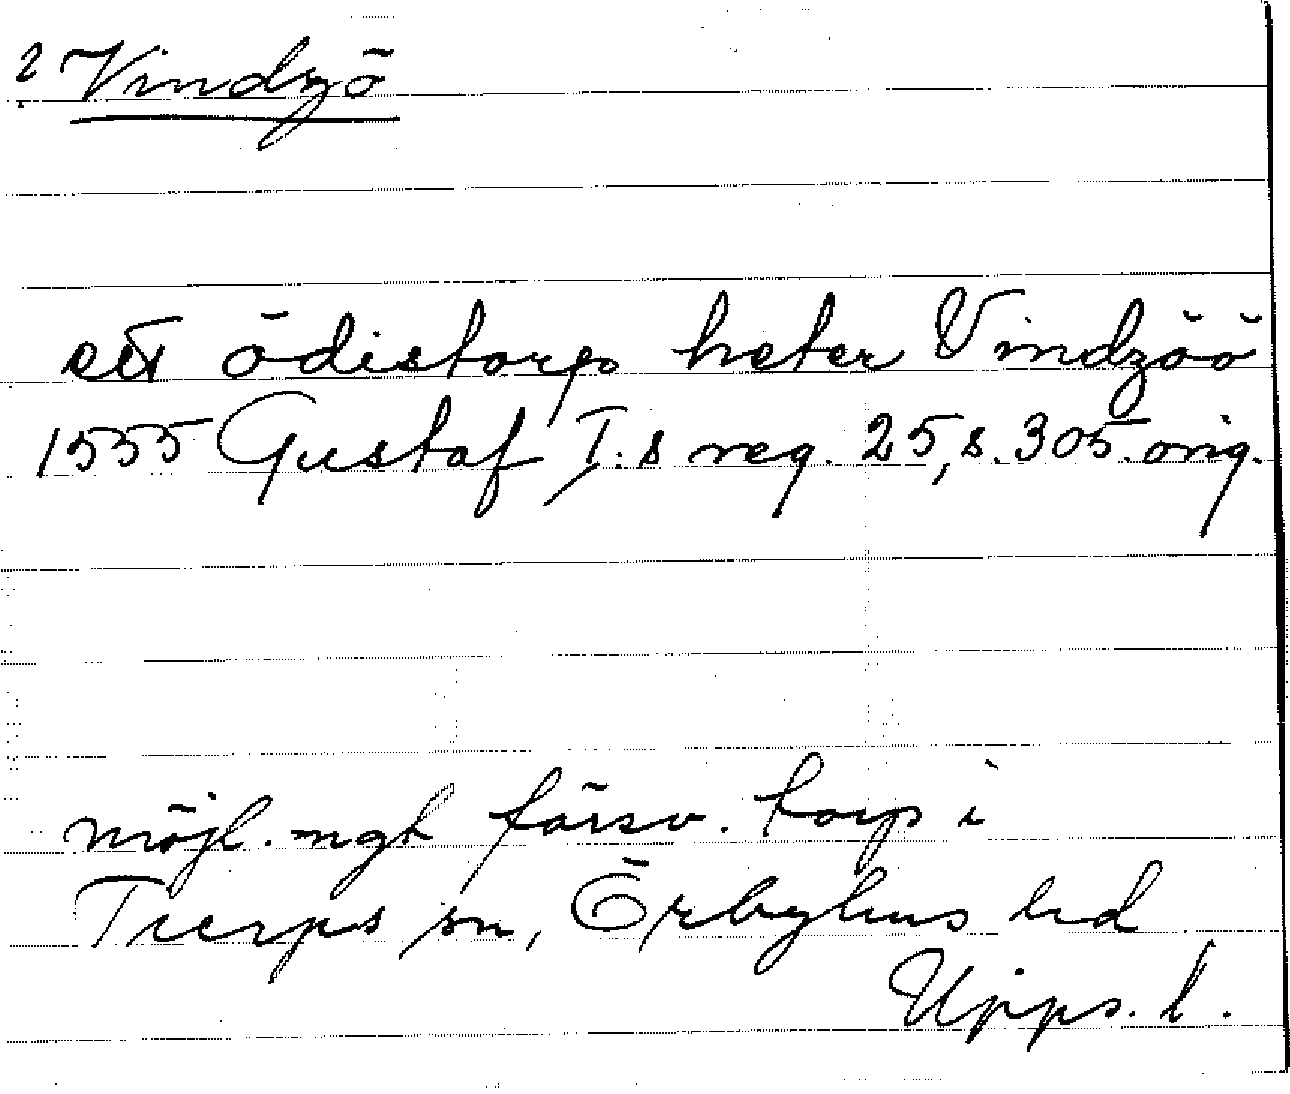 ? Vindzö
ett ödistorp heter Vindzöö
1555 Gustaf I:s reg. 25, s. 305. orig.
möjl. ngt försv. torp i
Tierps sn, Örbyhus hd
Upps. l.